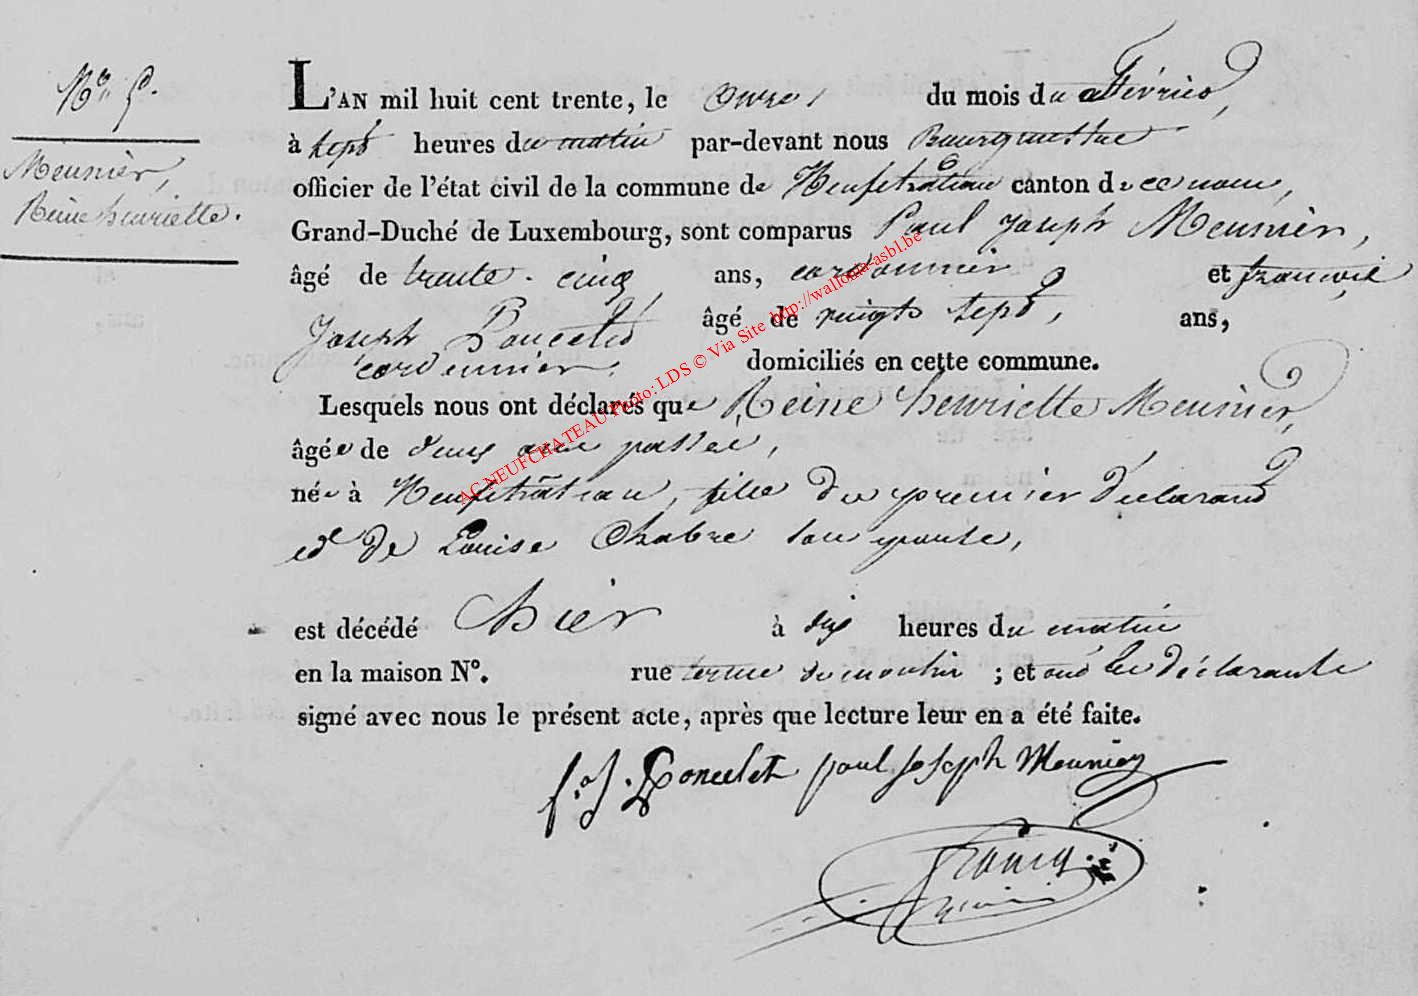 No. 5.
Meunier,
Reine henriette.
L'AN mil huit cent trente, le onze, du mois de Février,
à sept heures du matin par-devant nous Bourgmestre
officier de l'état civil de la commune de Neufchâteau canton de ce nom,
Grand-Duché de Luxembourg, sont comparus Paul Joseph Meunier,
âgé de trente-cinq ans, cordonnier et françois
Joseph Poncelet âgé de vingt sept, ans,
cordonnier, domiciliés en cette commune.
Lesquels nous ont déclarés que Reine henriette Meunier,
âgée de deux ans passés,
née à Neufchâteau, fille du premier déclarant
et de Louise Chabre son épouse,
est décédé hier à dix heures du matin
en la maison No. rue du moulin ; et ont les déclarants
signé avec nous le présent acte, après que lecture leur en a été faite.
f. J. Poncelet paul joseph Meunier
AC NEUFCHATEAU Photo: LDS © Via Site http://wallonia-asbl.be